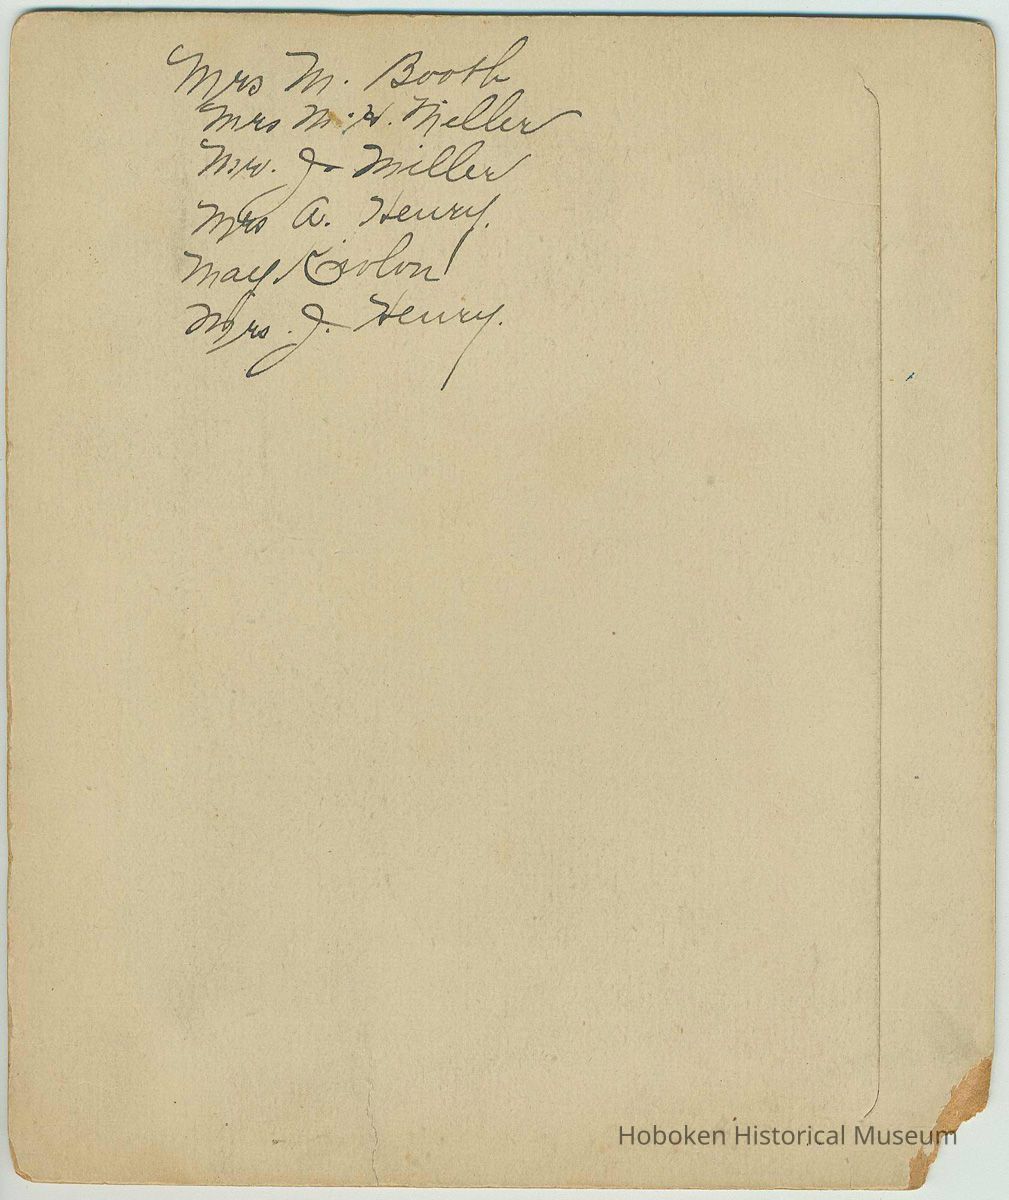 Mrs M. Booth
Mrs M. H. Miller
Mr. J. Miller
Mrs A. Henry.
May
Mrs. J. Henry.
Hoboken Historical Museum